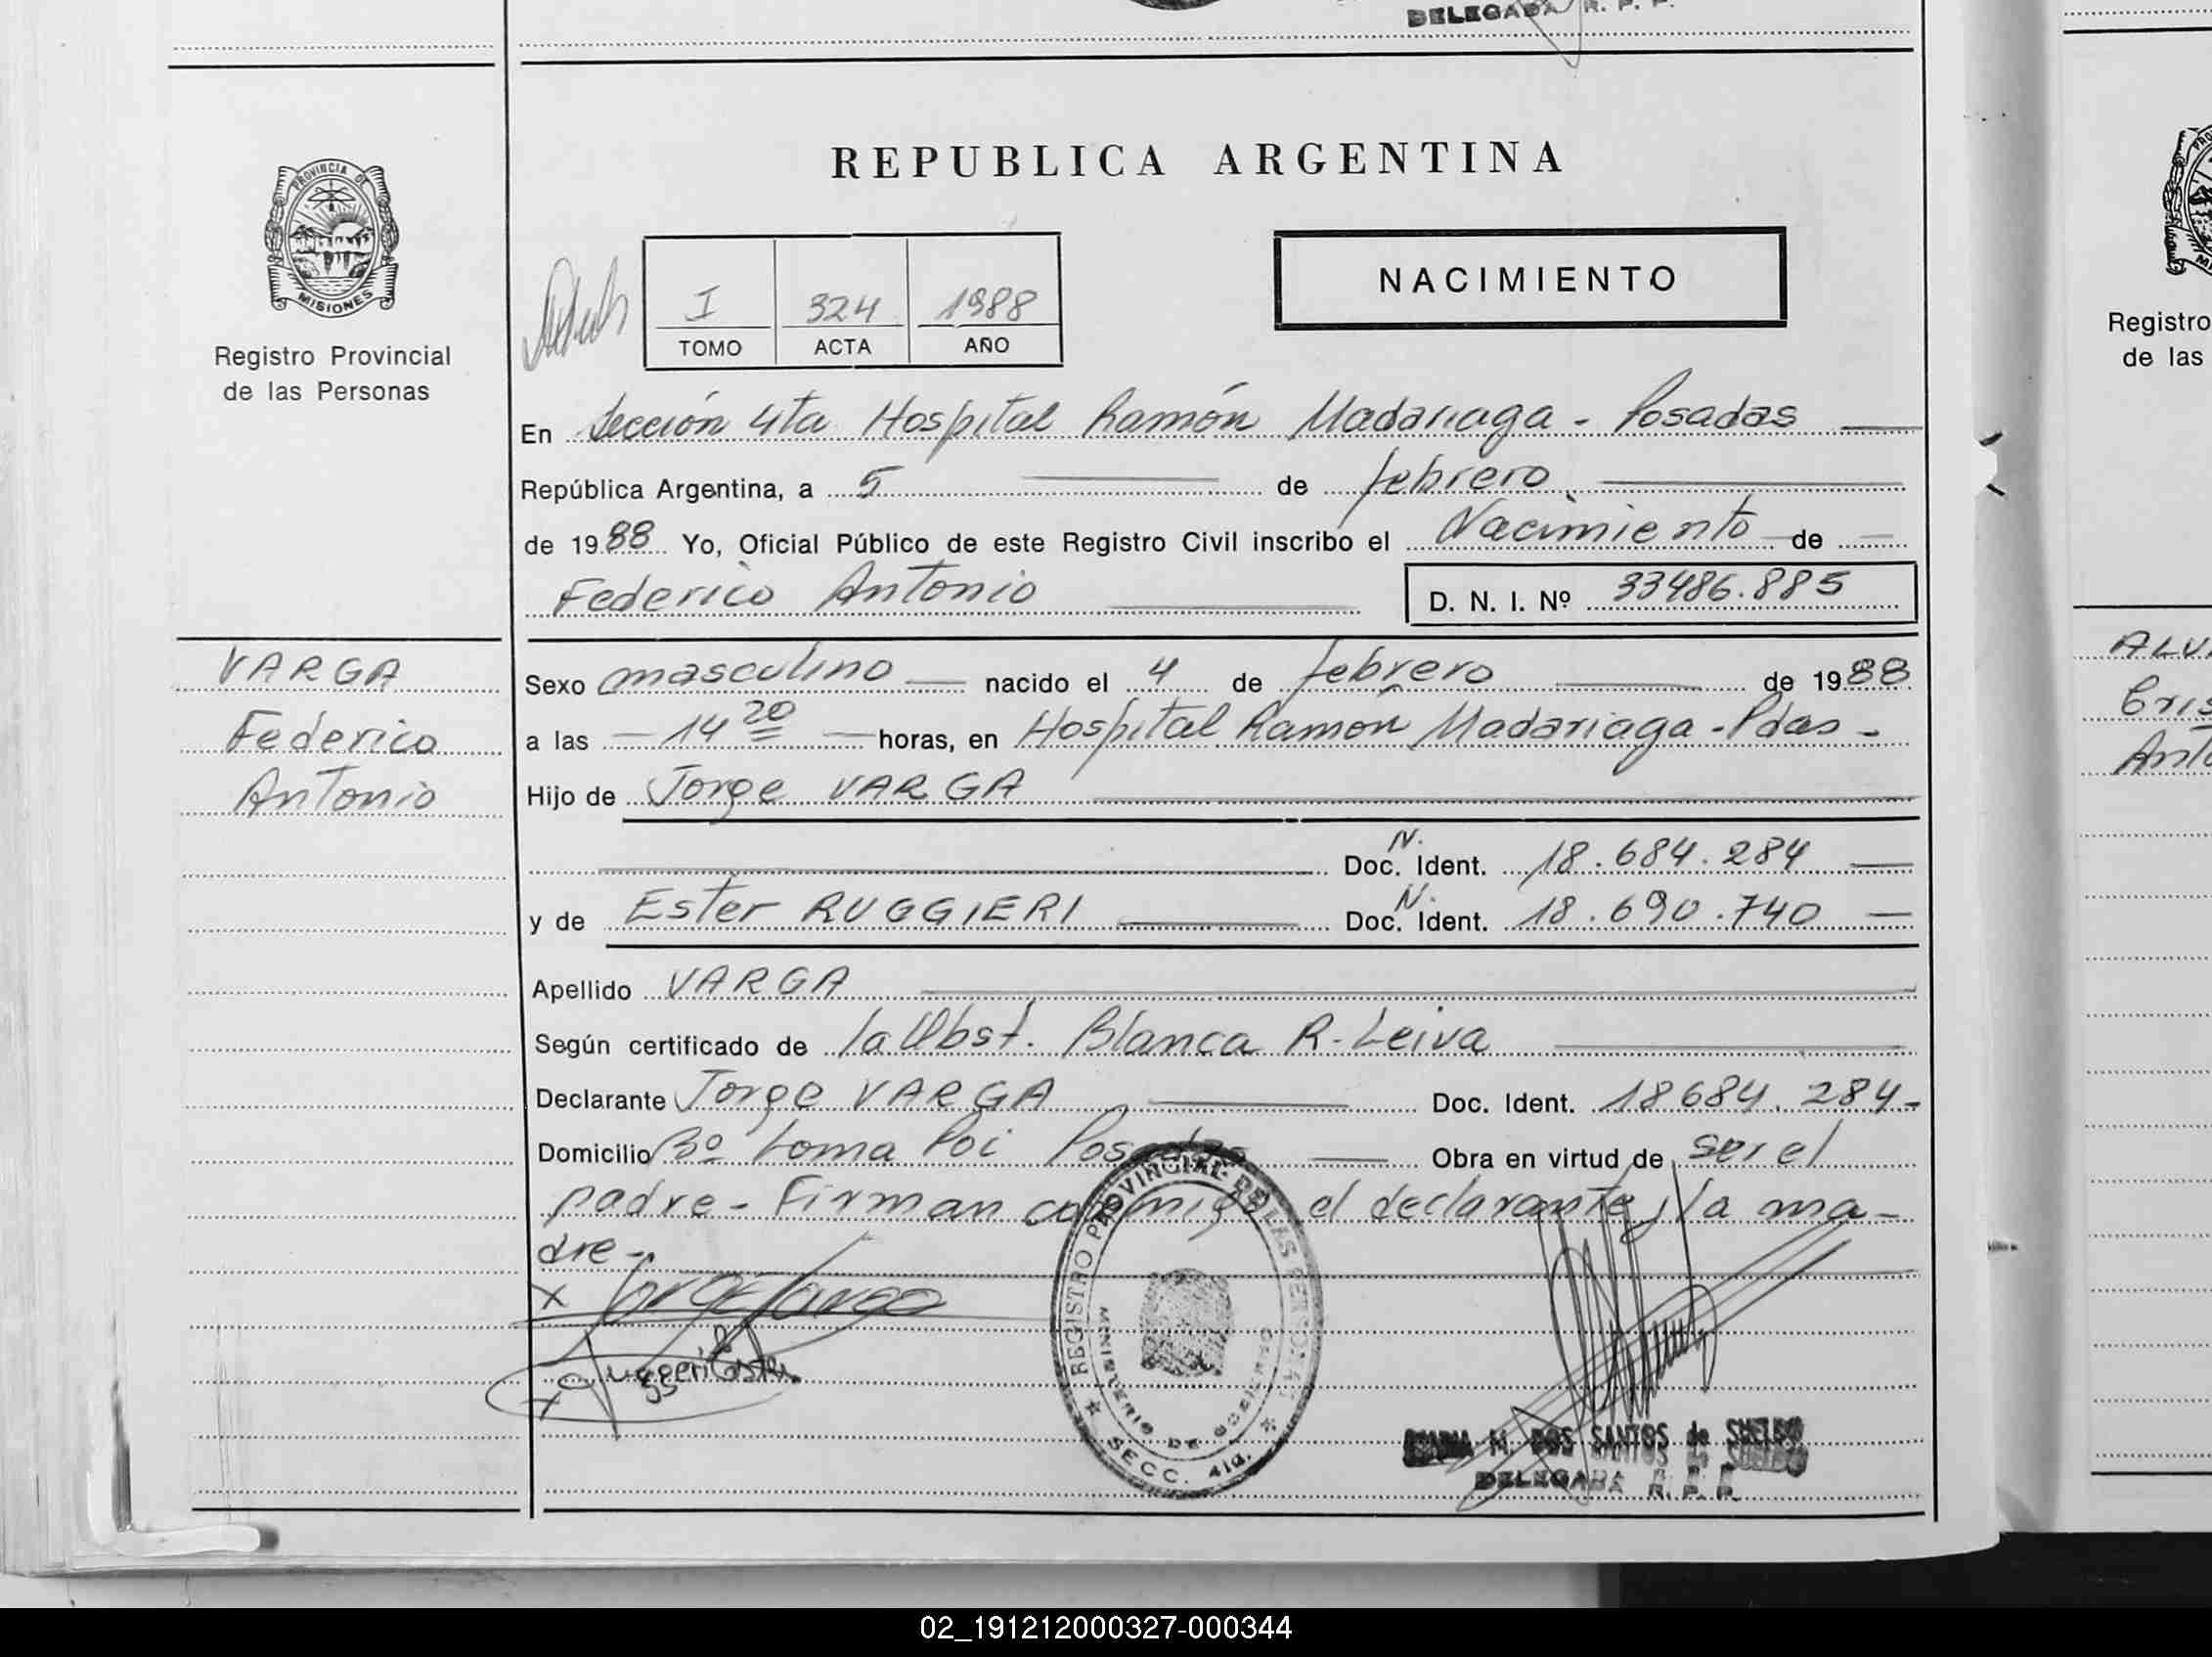 DELEGADA R. P. P.
PROVINCIA DE
MISIONES
Registro Provincial
de las Personas
REPUBLICA ARGENTINA
I 324 1988
TOMO ACTA AÑO
NACIMIENTO
En Sección 4ta Hospital Ramón Madariaga - Posadas
República Argentina, a 5 de febrero
de 1988 Yo, Oficial Público de este Registro Civil inscribo el Nacimiento de
Federico Antonio D. N. I. Nº 33486.885
VARGA
Federico
Antonio
Sexo masculino nacido el 4 de febrero de 1988
a las 14 20 horas, en Hospital Ramón Madariaga - Pdas -
Hijo de Jorge VARGA
N.
Doc. Ident. 18.684.284
N.
y de Ester RUGGIERI Doc. Ident. 18.690.740
Apellido VARGA
Según certificado de la Obst. Blanca R. Leiva
Declarante Jorge VARGA Doc. Ident. 18684.284-
Domicilio Bº Loma Poi Posadas Obra en virtud de ser el
padre - Firman conmigo el declarante y la ma-
dre -
x Jorge Varga
x
REGISTRO PROVINCIAL DE LAS PERSONAS
MINISTERIO DE GOBIERNO
SECC. 4ta.
M. DOS SANTOS de SUELDO
DELEGADA R. P. P.
Registro
de las
ALVA
Cris
Anto
02_191212000327-000344